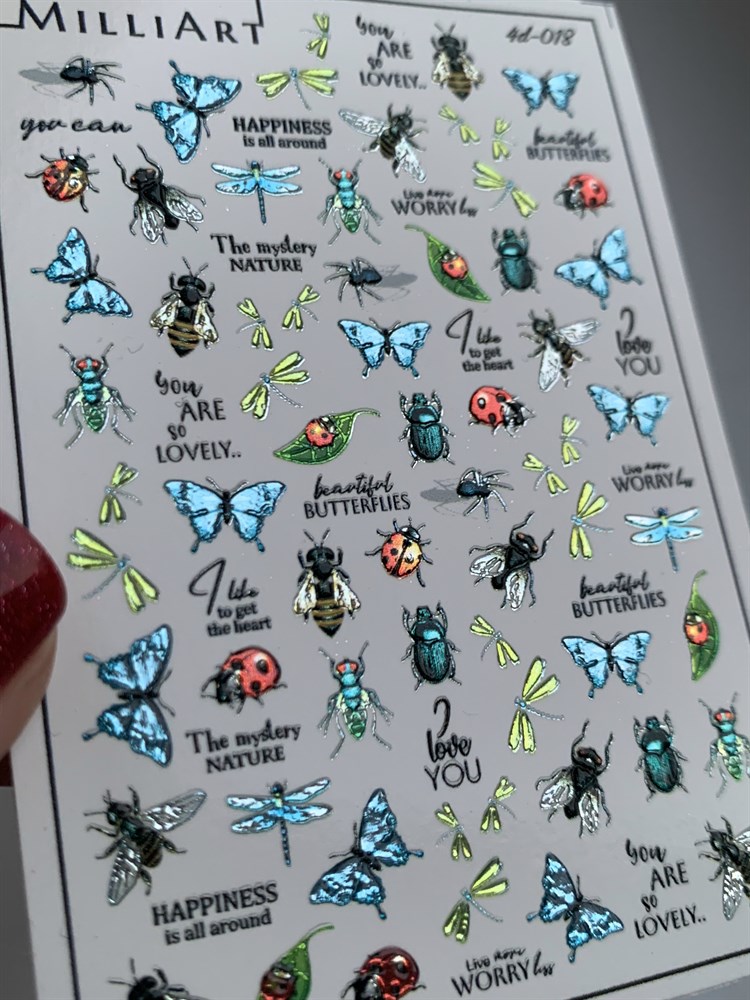 MILLIART
4d-018
you
ARE
so
LOVELY..
you can
HAPPINESS
is all around
beautiful
BUTTERFLIES
Live more
WORRY less
The mystery
NATURE
I like
to get
the heart
I
love
YOU
you
ARE
so
LOVELY..
Live more
WORRY less
beautiful
BUTTERFLIES
I like
to get
the heart
beautiful
BUTTERFLIES
The mystery
NATURE
I
love
YOU
HAPPINESS
is all around
you
ARE
so
LOVELY..
Live more
WORRY less